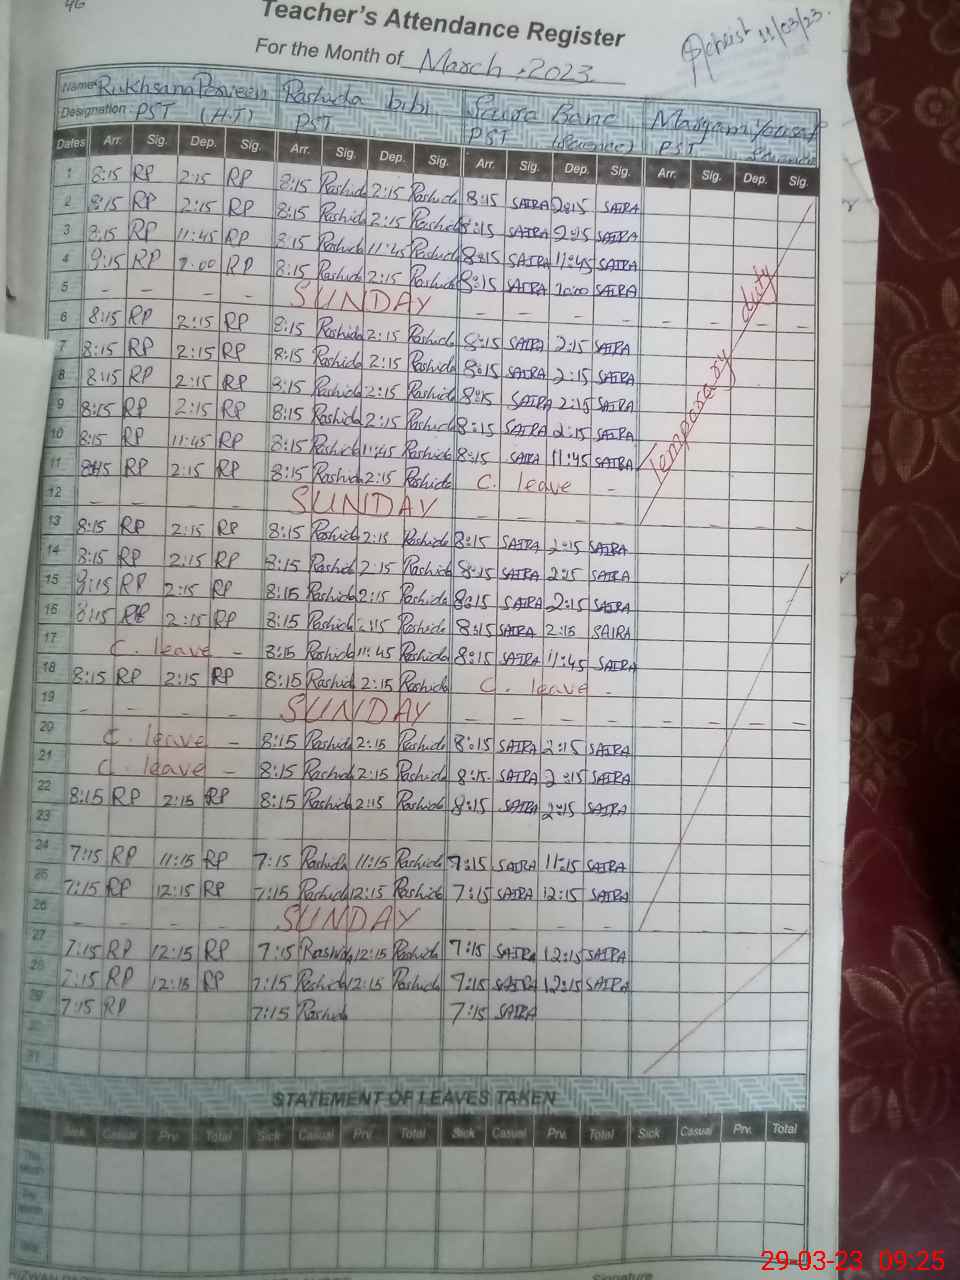 46
Teacher's Attendance Register
For the Month of March, 2023
11/03/23
Name: Rukhsana Parveen Rashida bibi Saira Bano Maryam Yousaf
Designation: PST (H.T) PST PST (Science) PST Science
Dates Arr. Sig. Dep. Sig. Arr. Sig. Dep. Sig. Arr. Sig. Dep. Sig. Arr. Sig. Dep. Sig.
1 8:15 RP 2:15 RP 8:15 Rashida 2:15 Rashida 8:15 SAIRA 2:15 SAIRA
2 8:15 RP 2:15 RP 8:15 Rashida 2:15 Rashida 8:15 SAIRA 2:15 SAIRA
3 8:15 RP 11:45 RP 8:15 Rashida 11:45 Rashida 8:15 SAIRA 11:45 SAIRA
4 8:15 RP RP 8:15 Rashida 2:15 Rashida 8:15 SAIRA SAIRA
5 - - - - SUNDAY - - - - - - - -
6 8:15 RP 2:15 RP 8:15 Rashida 2:15 Rashida 8:15 SAIRA 2:15 SAIRA
7 8:15 RP 2:15 RP 8:15 Rashida 2:15 Rashida 8:15 SAIRA 2:15 SAIRA
8 8:15 RP 2:15 RP 8:15 Rashida 2:15 Rashida 8:15 SAIRA 2:15 SAIRA
9 8:15 RP 2:15 RP 8:15 Rashida 2:15 Rashida 8:15 SAIRA 2:15 SAIRA
10 8:15 RP 11:45 RP 8:15 Rashida 11:45 Rashida 8:15 SAIRA 11:45 SAIRA
Temporary duty
11 8:15 RP 2:15 RP 8:15 Rashida 2:15 Rashida C. leave -
12 - - - - SUNDAY - - - - - - - -
13 8:15 RP 2:15 RP 8:15 Rashida 2:15 Rashida 8:15 SAIRA 2:15 SAIRA
14 8:15 RP 2:15 RP 8:15 Rashida 2:15 Rashida 8:15 SAIRA 2:15 SAIRA
15 8:15 RP 2:15 RP 8:15 Rashida 2:15 Rashida 8:15 SAIRA 2:15 SAIRA
16 8:15 RP 2:15 RP 8:15 Rashida 2:15 Rashida 8:15 SAIRA 2:15 SAIRA
17 C. leave - 8:15 Rashida 11:45 Rashida 8:15 SAIRA 11:45 SAIRA
18 8:15 RP 2:15 RP 8:15 Rashida 2:15 Rashida C. leave -
19 - - - - SUNDAY - - - - - - - -
20 C. leave - 8:15 Rashida 2:15 Rashida 8:15 SAIRA 2:15 SAIRA
21 C. leave - 8:15 Rashida 2:15 Rashida 8:15 SAIRA 2:15 SAIRA
22 8:15 RP 2:15 RP 8:15 Rashida 2:15 Rashida 8:15 SAIRA 2:15 SAIRA
23
24 7:15 RP 11:15 RP 7:15 Rashida 11:15 Rashida 7:15 SAIRA 11:15 SAIRA
25 7:15 RP 12:15 RP 7:15 Rashida 12:15 Rashida 7:15 SAIRA 12:15 SAIRA
26 - - - - SUNDAY - - - - - - - -
27 7:15 RP 12:15 RP 7:15 Rashida 12:15 Rashida 7:15 SAIRA 12:15 SAIRA
28 7:15 RP 12:15 RP 7:15 Rashida 12:15 Rashida 7:15 SAIRA 12:15 SAIRA
29 7:15 RP 7:15 Rashida 7:15 SAIRA
30
31
STATEMENT OF LEAVES TAKEN
Sick Casual Prv. Total Sick Casual Prv. Total Sick Casual Prv. Total Sick Casual Prv. Total
This Month
Signature
29-03-23 09:25